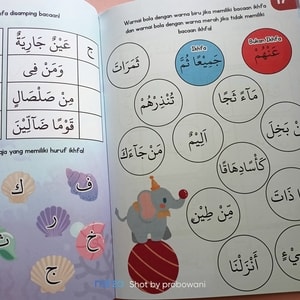 fa disamping bacaan!
ج
عَيْنٌ جَارِيَةٌ
وَمَنْ فِى
مِنْ صَلْصَالٍ
قَوْمًا ضَآلِّيْنَ
aja yang memiliki huruf Ikhfa!
ف
ك
ر
خ
ج
Warnai bola dengan warna biru jika memiliki bacaan ikhfa
dan warnai bola dengan warna merah jika tidak memiliki
bacaan ikhfa!
Ikhfa
Bukan Ikhfa
جَمِيْعًا ثُمَّ
عَنْهُمْ
ثَمَرَاتٍ
مَآءً ثَجَّا
تُنْذِرْهُمْ
اَلِيْمٌ
مَنْ جَآءَكَ
كَأْسًا دِهَاقًا
مِّنْ طِيْنٍ
أَنْزَلْنَا
Shot by probowani